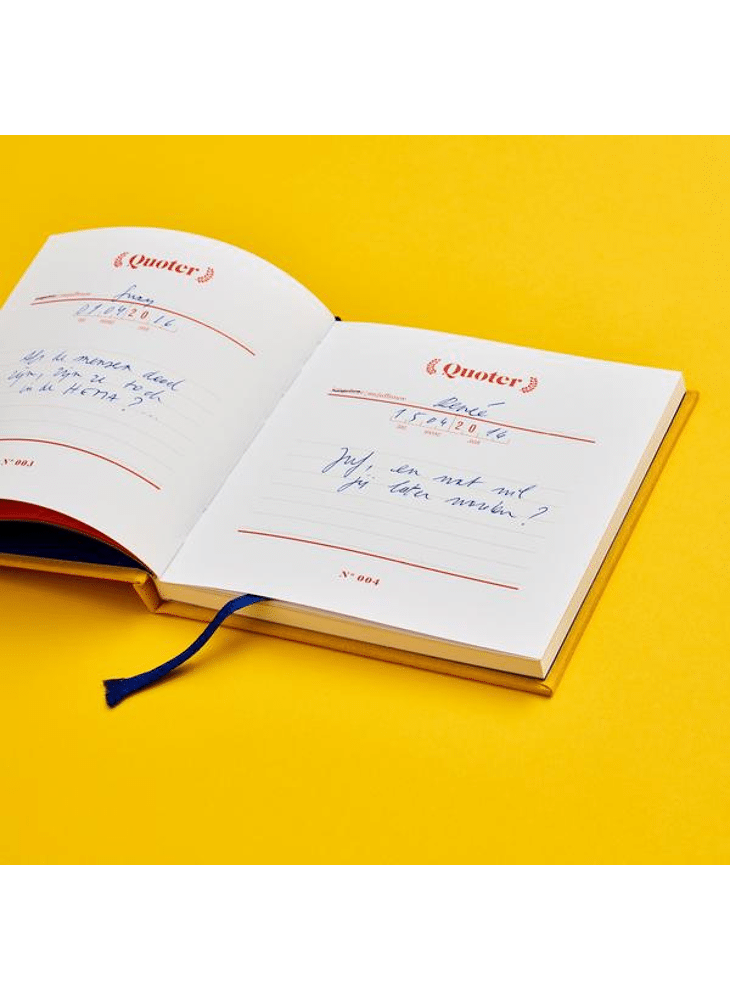 Quoter
01042016
Als de mensen dood
zijn, zijn ze toch
in de HEMA?...
N° 003
Quoter
Renée
15042016
Juf, en wat wil
jij later worden?
N° 004